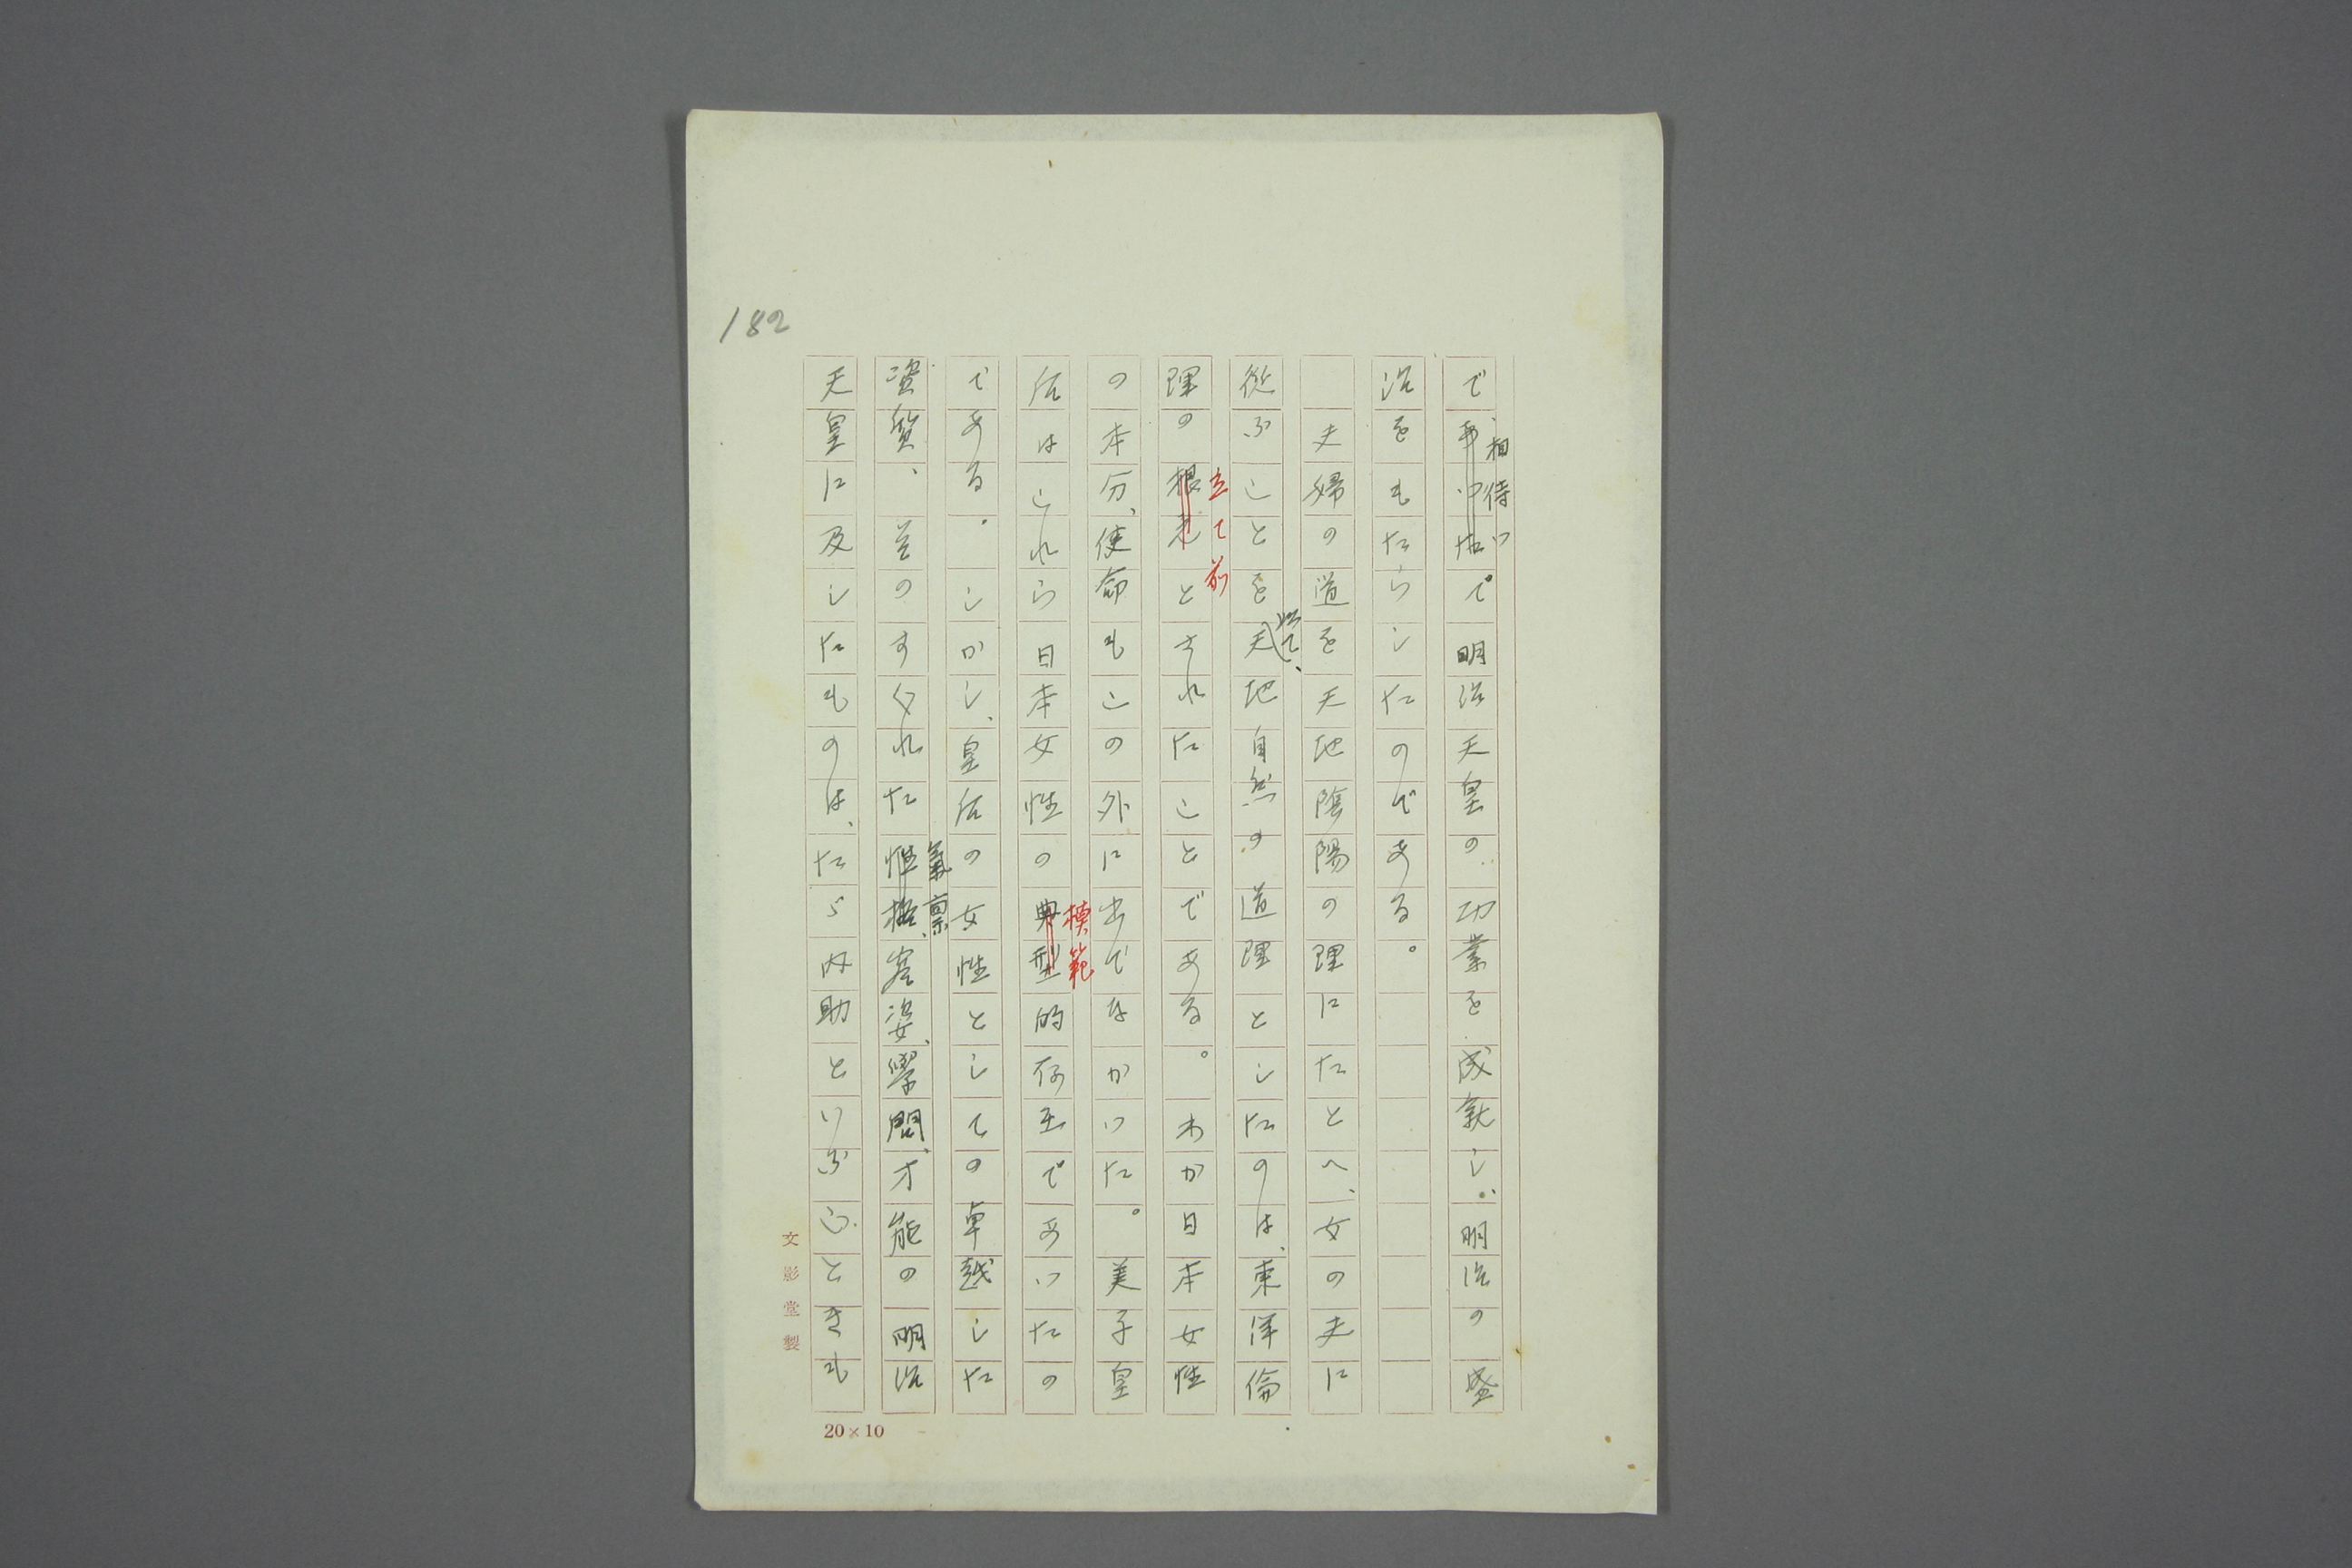 182
で、相待つて明治天皇の功業を成就し、明治の盛
治をもたらしたのである。
夫婦の道を天地陰陽の理にたとへ、女の夫に
従ふことを以て、天地自然の道理としたのは、東洋倫
理の立て前とされたことである。わが日本女性
の本分、使命もこの外に出でなかつた。美子皇
后はこれら日本女性の模範的存在であつたの
である。しかし、皇后の女性としての卓越した
資質、そのすぐれた氣禀、容姿、學問、才能の明治
天皇に及したものは、たゞ内助といふひときも
文影堂製
20×10